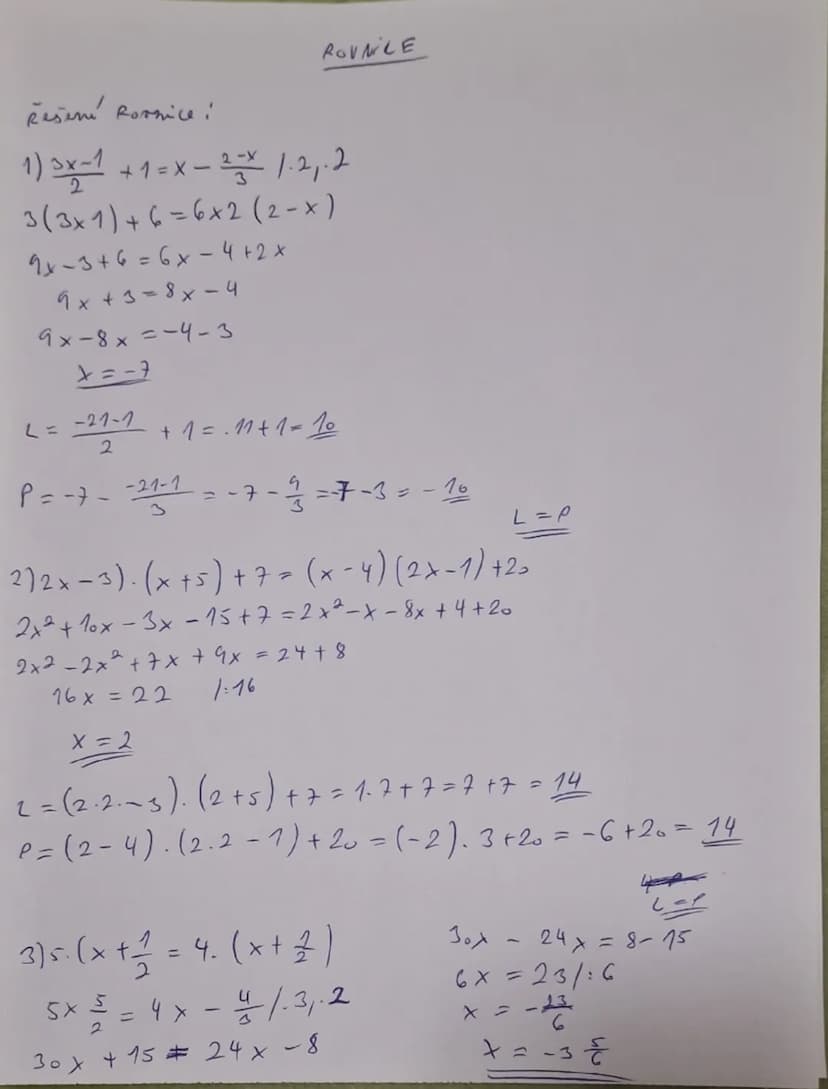 ROVNICE
Řešení Rovnice:
1) \frac{3x-1}{2} + 1 = x - \frac{2-x}{3} /.2,.2
3(3x1) + 6 = 6x2(2-x)
9x-3+6 = 6x-4+2x
9x+3=8x-4
9x-8x=-4-3
x=-7
L = \frac{-21-1}{2} + 1 = .11+1= 10
P = -7 - \frac{-21-1}{3} = -7 - \frac{9}{3} = -7-3 = -10
L=P
2) 2x-3).(x+5)+7=(x-4)(2x-1)+20
2x²+10x-3x-15+7=2x²-x-8x+4+20
2x2-2x²+7x+9x=24+8
16x=22 /:16
x=2
L=(2.2.-3).(2+5)+7=1.7+7=7+7=14
P=(2-4).(2.2-1)+20=(-2).3+20=-6+20=14
L=P
3) 5.(x+\frac{1}{2} = 4.(x+\frac{1}{2})
5x \frac{5}{2} = 4x - \frac{4}{3} /.3,.2
30x+15=24x-8
30x-24x=8-15
6x=23/:6
x=-\frac{23}{6}
x=-3\frac{5}{6}